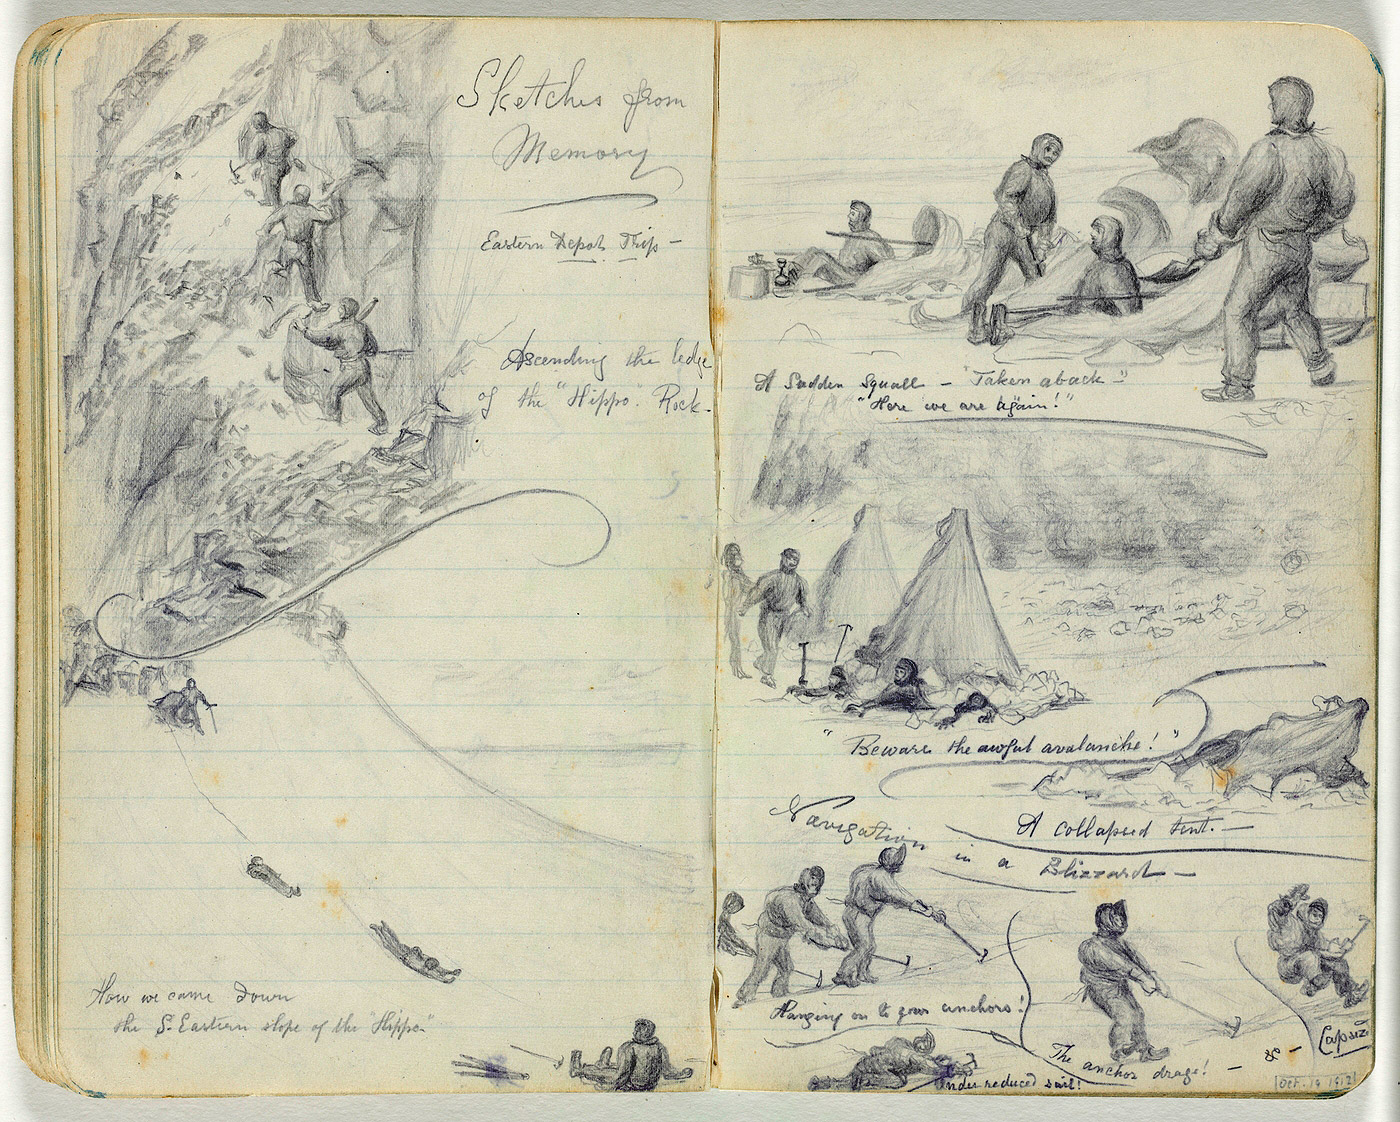 Sketches from
Memory
Eastern Depot Trip -
Ascending the ledge
of the "Hippo". Rock.
How we came down
the S. Eastern slope of the "Hippo"
A Sudden Squall - "Taken aback -"
"Here we are again!"
"Beware the awful avalanche!"
A collapsed tent. -
Navigation in a Blizzard -
Hanging on to your anchors!
The anchor drags! -
Under reduced sail!
Oct. 19 1912